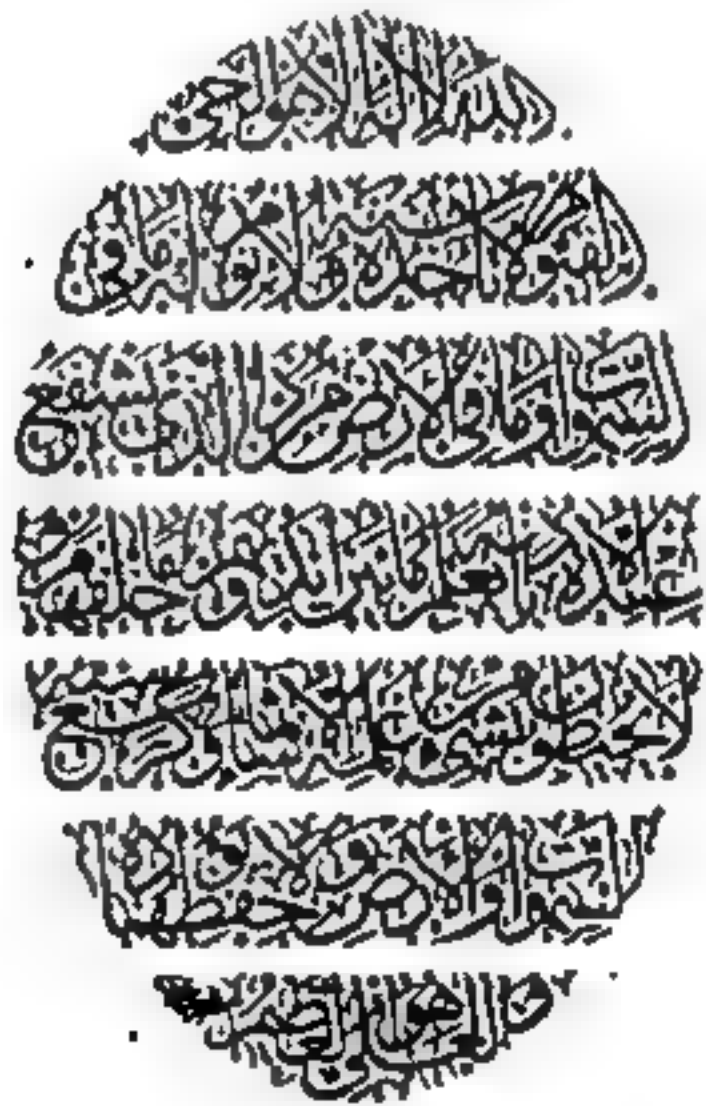 الله لا إله إلا هو الحي
القيوم لا تأخذه سنة ولا نوم له ما في
السموات وما في الأرض من ذا الذي يشفع
عنده إلا بإذنه يعلم ما بين أيديهم وما خلفهم
ولا يحيطون بشيء من علمه إلا بما شاء وسع
كرسيه السموات والأرض ولا يؤده حفظهما
وهو العلي العظيم